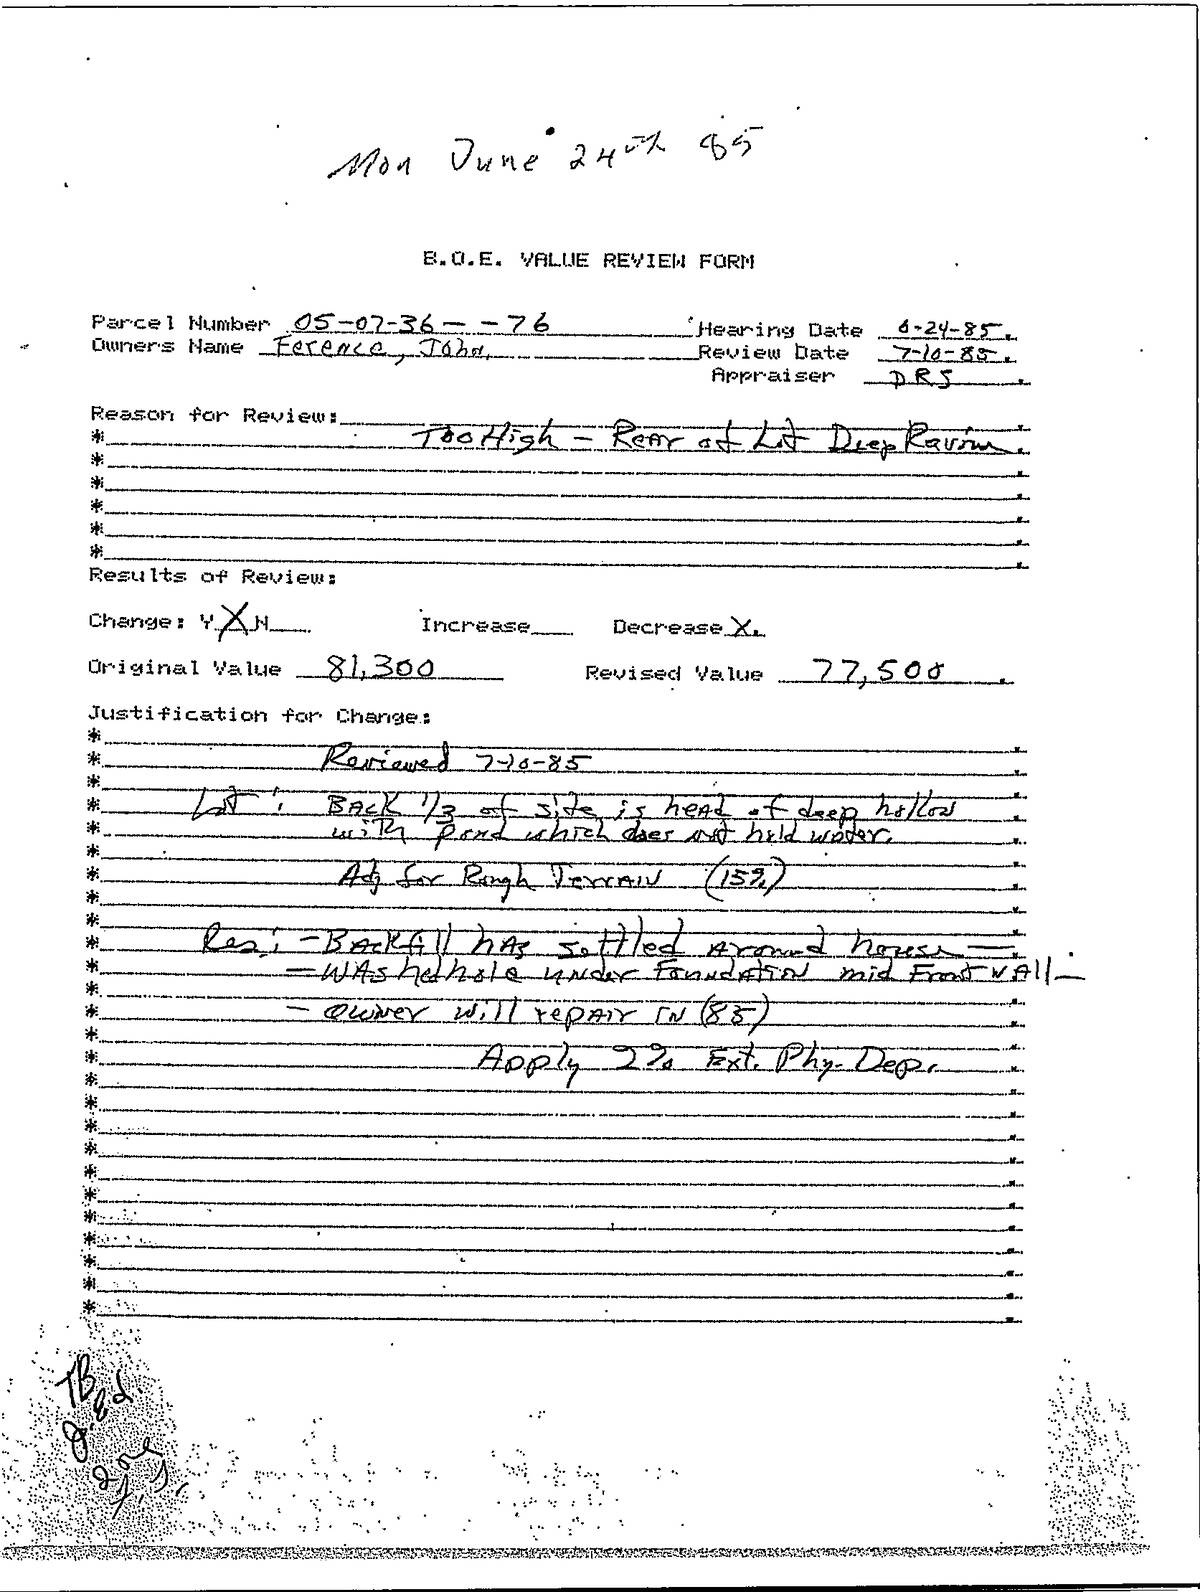 Mon June 24th 85
B.O.E. VALUE REVIEW FORM
Parcel Number 05-07-36- -76 Hearing Date 6-24-85.
Owners Name Ference, John Review Date 7-10-85.
Appraiser DRS
Reason for Review:
* Too High - Rear of Lot Deep Ravine
*
*
*
*
*
Results of Review:
Change: Y X N Increase Decrease X.
Original Value 81,300 Revised Value 77,500
Justification for Change:
*
* Reviewed 7-10-85
*
* Lot: Back 1/3 of site is head of deep hollow
* with pond which does not hold water.
*
* Adj for Rough Terrain (15%)
*
*
* Res: - Backfill has settled around house -
* - Washed hole under foundation mid Front Wall -
*
* - owner will repair in (85)
*
* Apply 2% Ext. Phy. Dep.
*
*
*
*
*
*
*
*
*
*
*
TB